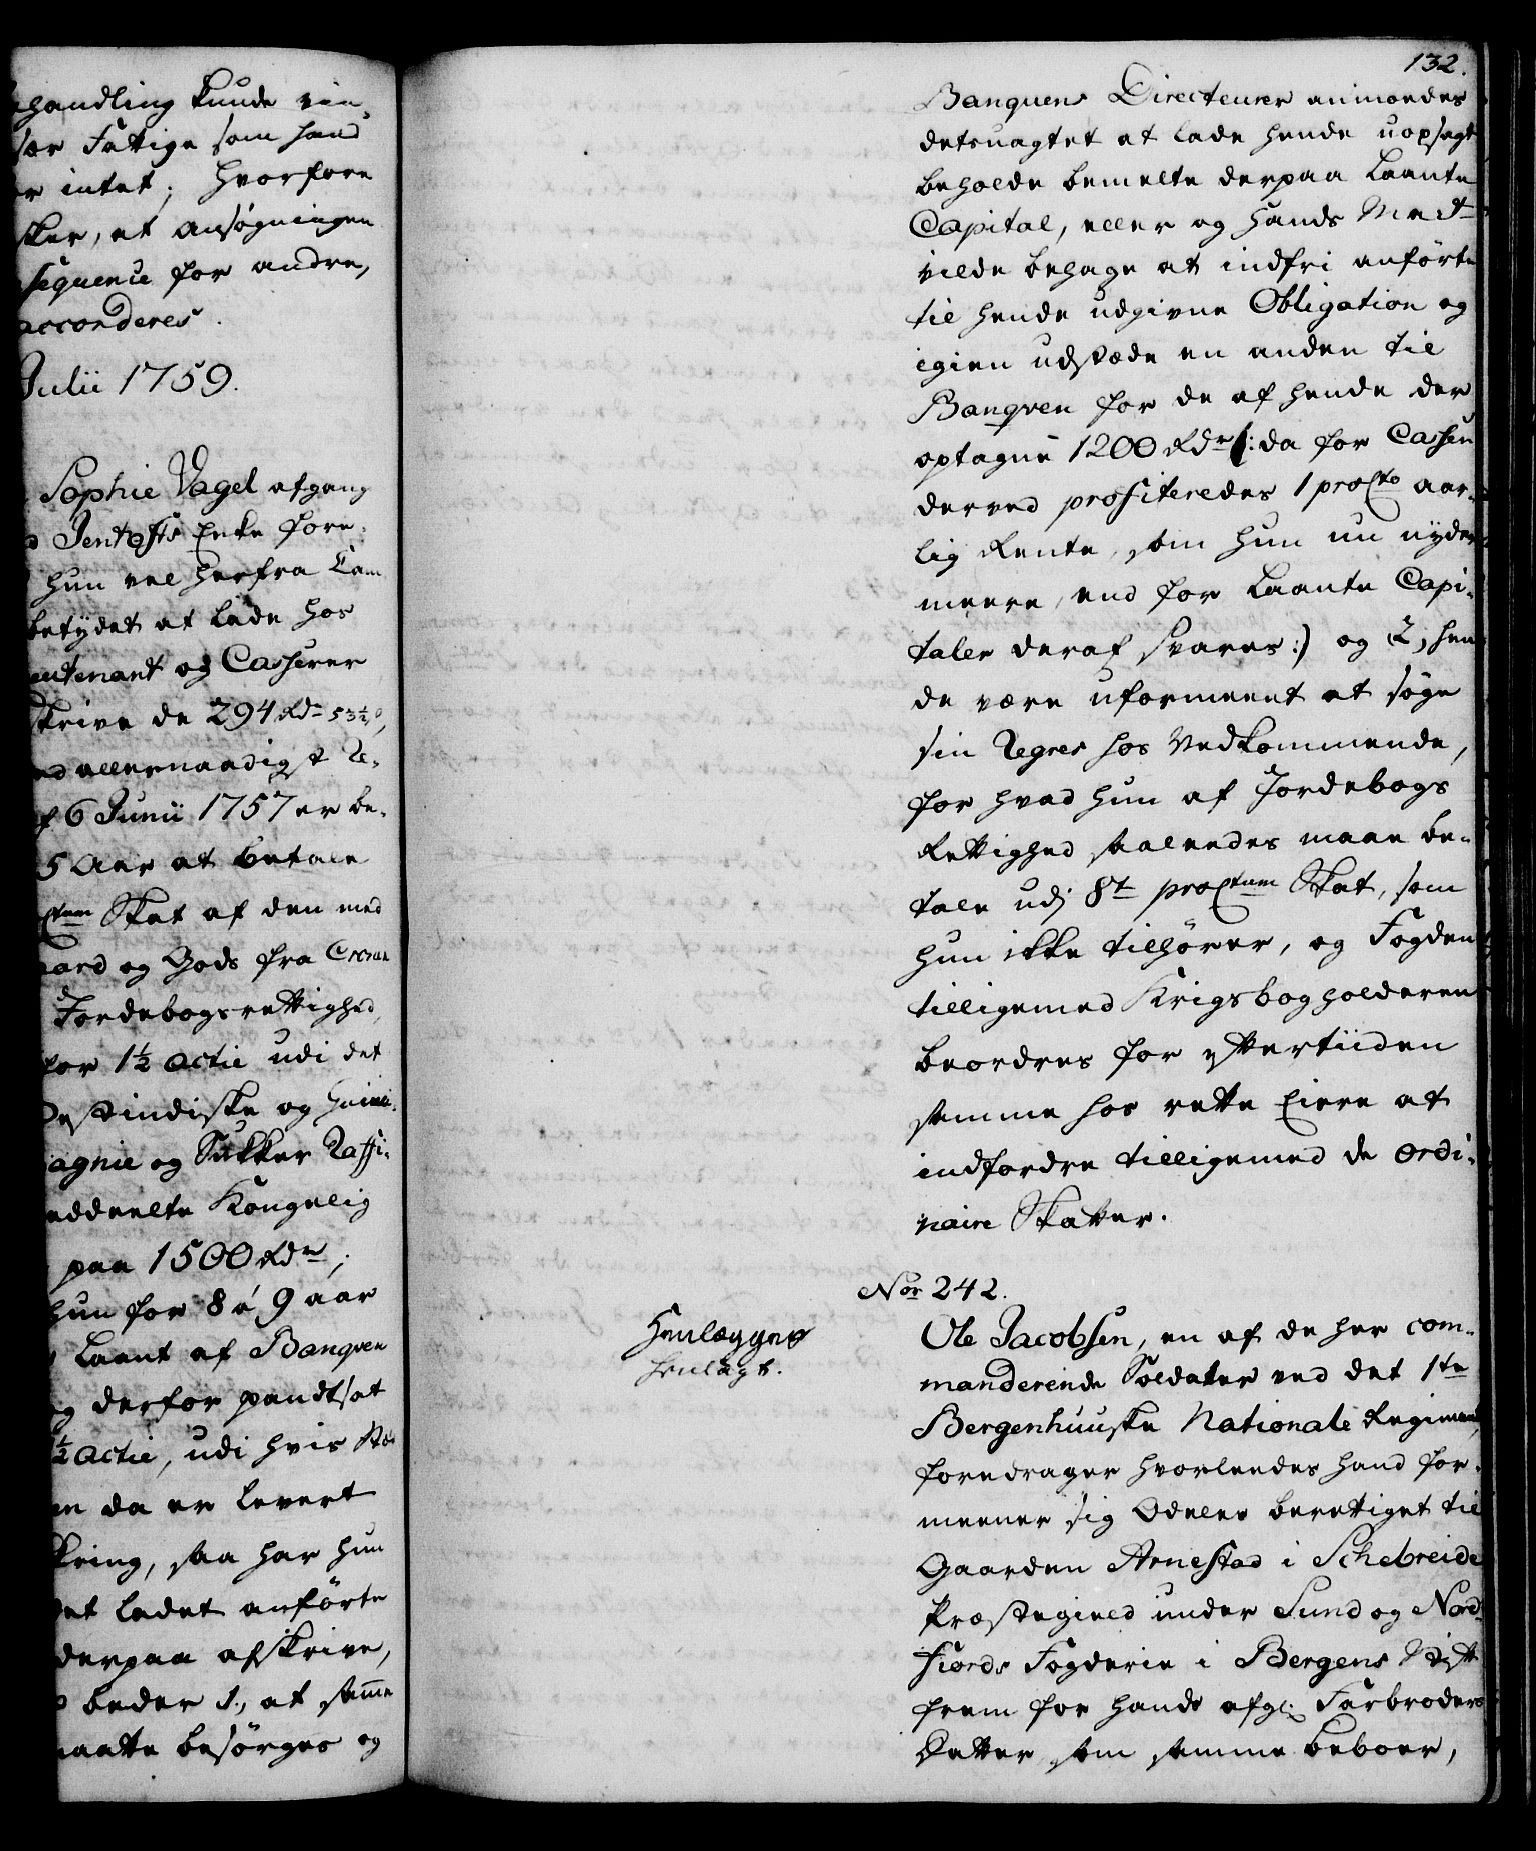 handling kunde vin-
sær Fattige som hand
er intet; hvorfore
sker, at ansøgningen
sequence for andre,
accorderes.
Julii 1759.
Sophie Vagel afgang
Jentofts Enke fore-
hun vel herfra Cam
betydet at lade hos
eutenant og Casserer
skrive de 294 Rdr 53½ ,
ed allernaadigst Re-
af 6 Junii 1757 er be-
5 Aar at betale
Ctum Skat af den med
aard og Gods fra Cronen
Jordebogsrettighed,
for 1½ Actie udi det
Vestindiske og Guinei-
agnie og Sukker Raffi-
eddeelte Kongelig
paa 1500 Rdr;
hun for 8 á 9 aar
Laant af Banqven
og derfor pandtsat
½ Actie, udi hvis Stæ
en da er levert
kring, saa har hun
et ladet anførte
derpaa afskrive,
beder 1., at samme
maatte besørges og
132.
Banquens Directeurer anmodes
detsuagtet at lade hende uopsagt
beholde bemelte derpaa Laante
Capital, eller og hands Mait
vilde behage at indfri anførte
til hende udgivne Obligation og
igien udstæde en anden til
Banqven for de af hende der
optagne 1200 Rdr /: da for Cassen
derved profiteredes 1 proCto aar-
lig Rente, som hun nu nyder
meere, end for Laante Capi-
taler deraf svares :/ og 2, hen
de være uformeent at søge
sin Regres hos Vedkommende,
for hvad hun af Jordebogs
Rettighed saaleedes maae be-
tale udj 8t proCtum Skat, som
hun ikke tilhører, og Fogden
tilligemed Krigsbogholderen
beordres for eftertiiden
samme hos rette Eiere at
indfordre tilligemed de ordi-
naire Skatter.
Nor 242.
Henlægges
henlagt.
Ole Jacobsen, en af de her com-
manderende Soldater ved det 1ste
Bergenhuuske Nationale Regiment,
foredrager hvorleedes hand for-
meener sig Odels berettiget til
Gaarden Arnestad i Schebreide
Præstegield under Sund og Nord
fiords Fogderie i Bergens Stift
frem for hands afgl: Farbroders
Datter som samme beboer,